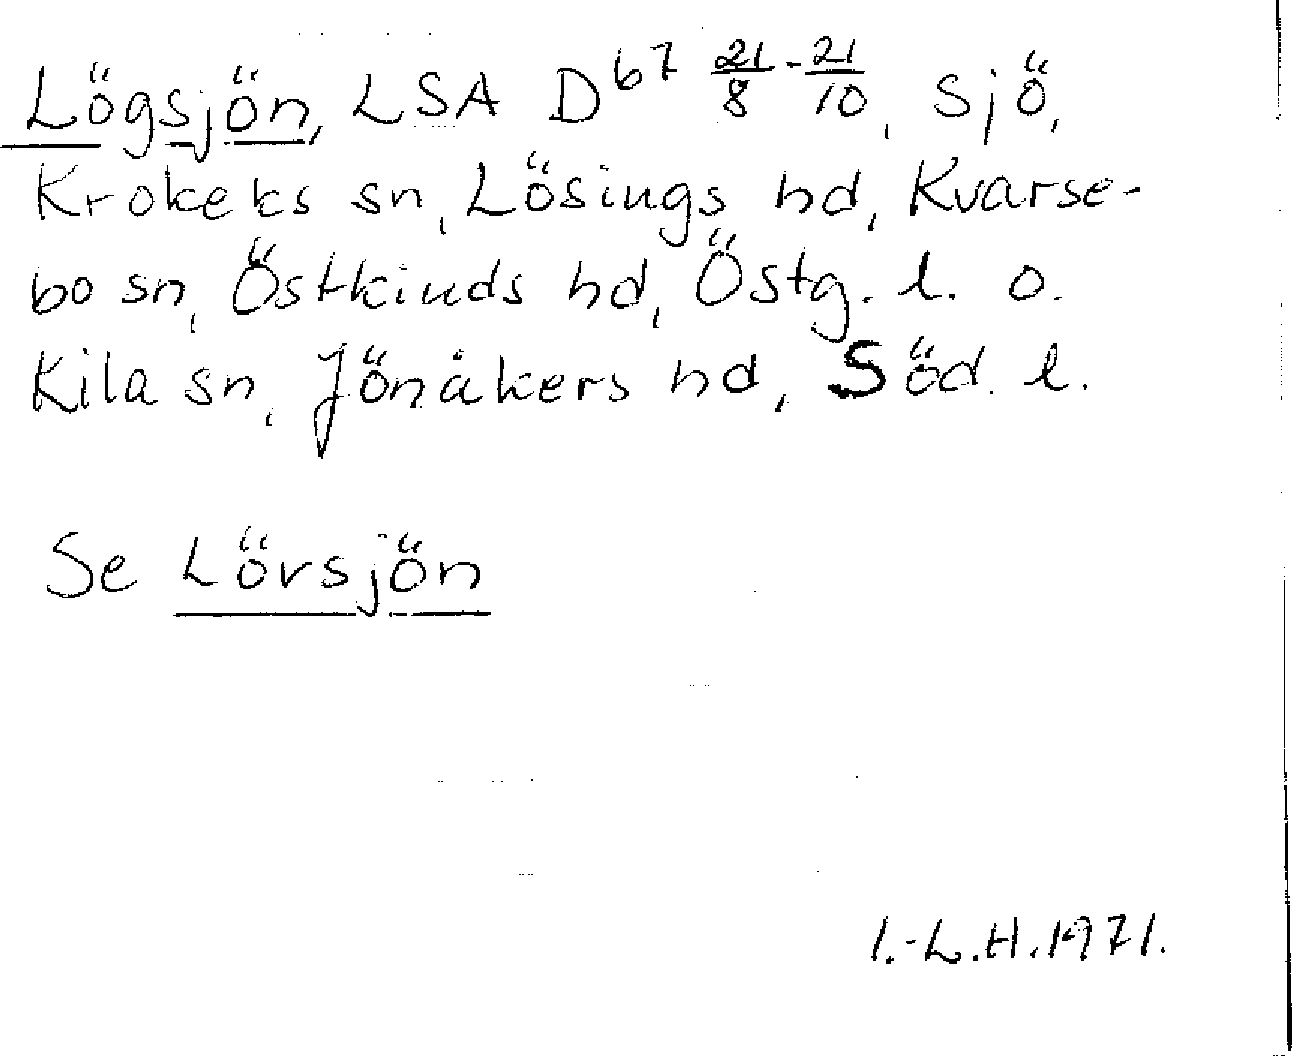 Lögsjön, LSA D⁶⁷ 21/8-21/10, Sjö,
Krokeks sn, Lösings hd, Kvarse-
bo sn, Östkinds hd, Östg. l. o.
Kila sn, Jönåkers hd, Söd. l.
Se Lövsjön
I.-L.H. 1971.